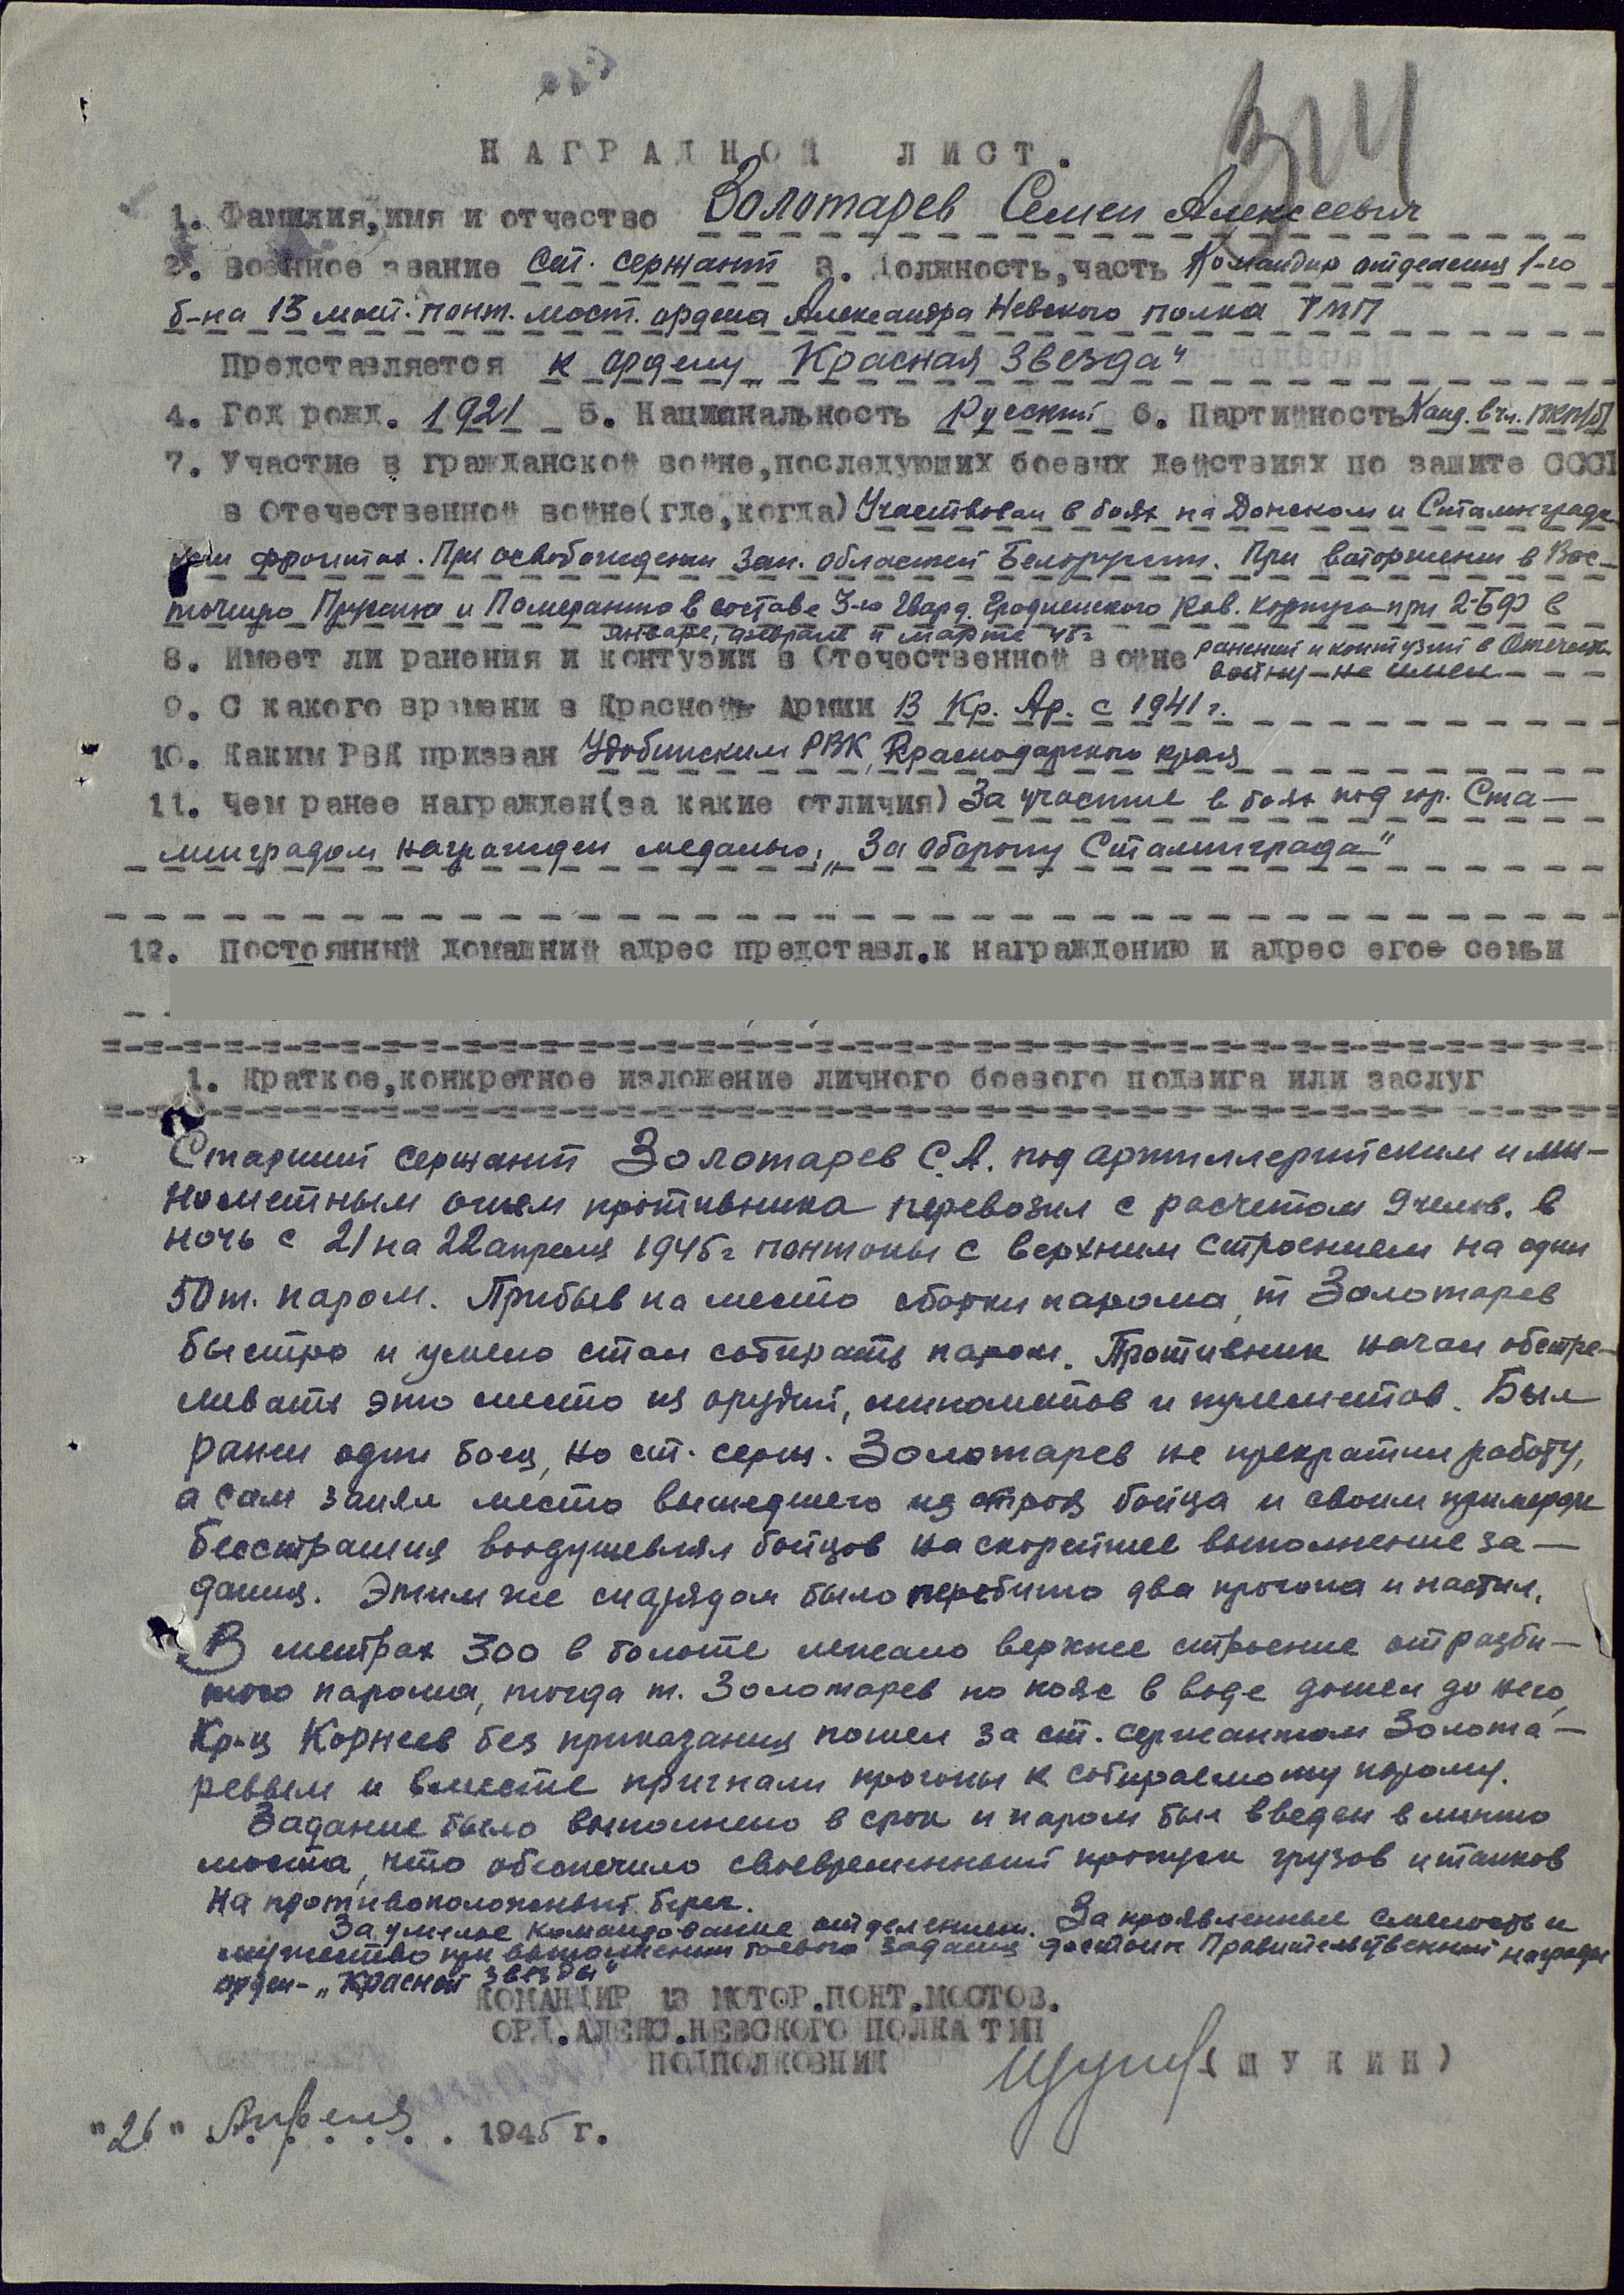 НАГРАДНОЙ ЛИСТ.
1. Фамилия,имя и отчество Золотарев Семен Алексеевич
2. Военное звание Ст. сержант 3. Должность,часть Командир отделения 1-го
б-на 13 мот. понт. мост. ордена Александра Невского полка ТМП
Представляется к ордену „Красная Звезда"
4. Год рожд. 1921 5. Национальность Русский 6. Партийность Канд. в чл. ВКП(б)
7. Участие в гражданской войне,последующих боевых действиях по защите СССР
в Отечественной войне(где,когда) Участвовал в боях на Донском и Сталинград-
ском фронтах. При освобождении Зап. областей Белоруссии. При вторжении в Вос-
точную Пруссию и Померанию в составе 3-го Гвард. Гродненского Кав. корпуса при 2-БФ в
январе, феврале и марте 45 г
8. Имеет ли ранения и контузии в Отечественной войне ранений и контузий в Отечеств.
войну – не имел
9. С какого времени в Красной Армии В Кр. Ар. с 1941 г.
10. Каким РВК призван Удобинским РВК, Краснодарского края
11. Чем ранее награжден(за какие отличия) За участие в боях под гор. Ста-
линградом награжден медалью: „За оборону Сталинграда"
12. Постоянный домашний адрес представл.к награждению и адрес его семьи
1. Краткое,конкретное изложение личного боевого подвига или заслуг
Старший сержант Золотарев С.А. под артиллерийским и ми-
нометным огнем противника перевозил с расчетом 9 челов. в
ночь с 21 на 22 апреля 1945 г понтоны с верхним строением на один
50 т. паром. Прибыв на место сборки парома, т Золотарев
быстро и умело стал собирать паром. Противник начал обстре-
ливать это место из орудий, минометов и пулеметов. Был
ранен один боец, но ст. серж. Золотарев не прекратил работу,
а сам занял место вышедшего из строя бойца и своим примером
бесстрашия воодушевлял бойцов на скорейшее выполнение за-
дания. Этим же снарядом было перебито два прогона и настил.
В метрах 300 в болоте лежало верхнее строение от разби-
того парома, тогда т. Золотарев по пояс в воде дошел до него,
Кр-ц Корнеев без приказания пошел за ст. сержантом Золота-
ревым и вместе пригнали прогоны к собираемому парому.
Задание было выполнено в срок и паром был введен в линию
моста, что обеспечило своевременный пропуск грузов и танков
на противоположный берег.
За умелое командование отделением. За проявленные смелость и
мужество при выполнении боевого задания достоин Правительственной награды
орден – „Красной Звезды"
КОМАНДИР 13 МОТОР.ПОНТ.МОСТОВ.
ОРД.АЛЕКС.НЕВСКОГО ПОЛКА ТМП
ПОДПОЛКОВНИК (ЩУКИН)
"26" Апреля 1945 г.